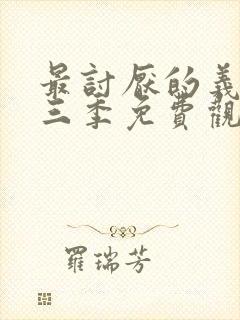 最討厭的義
三季免費觀
羅瑞芳